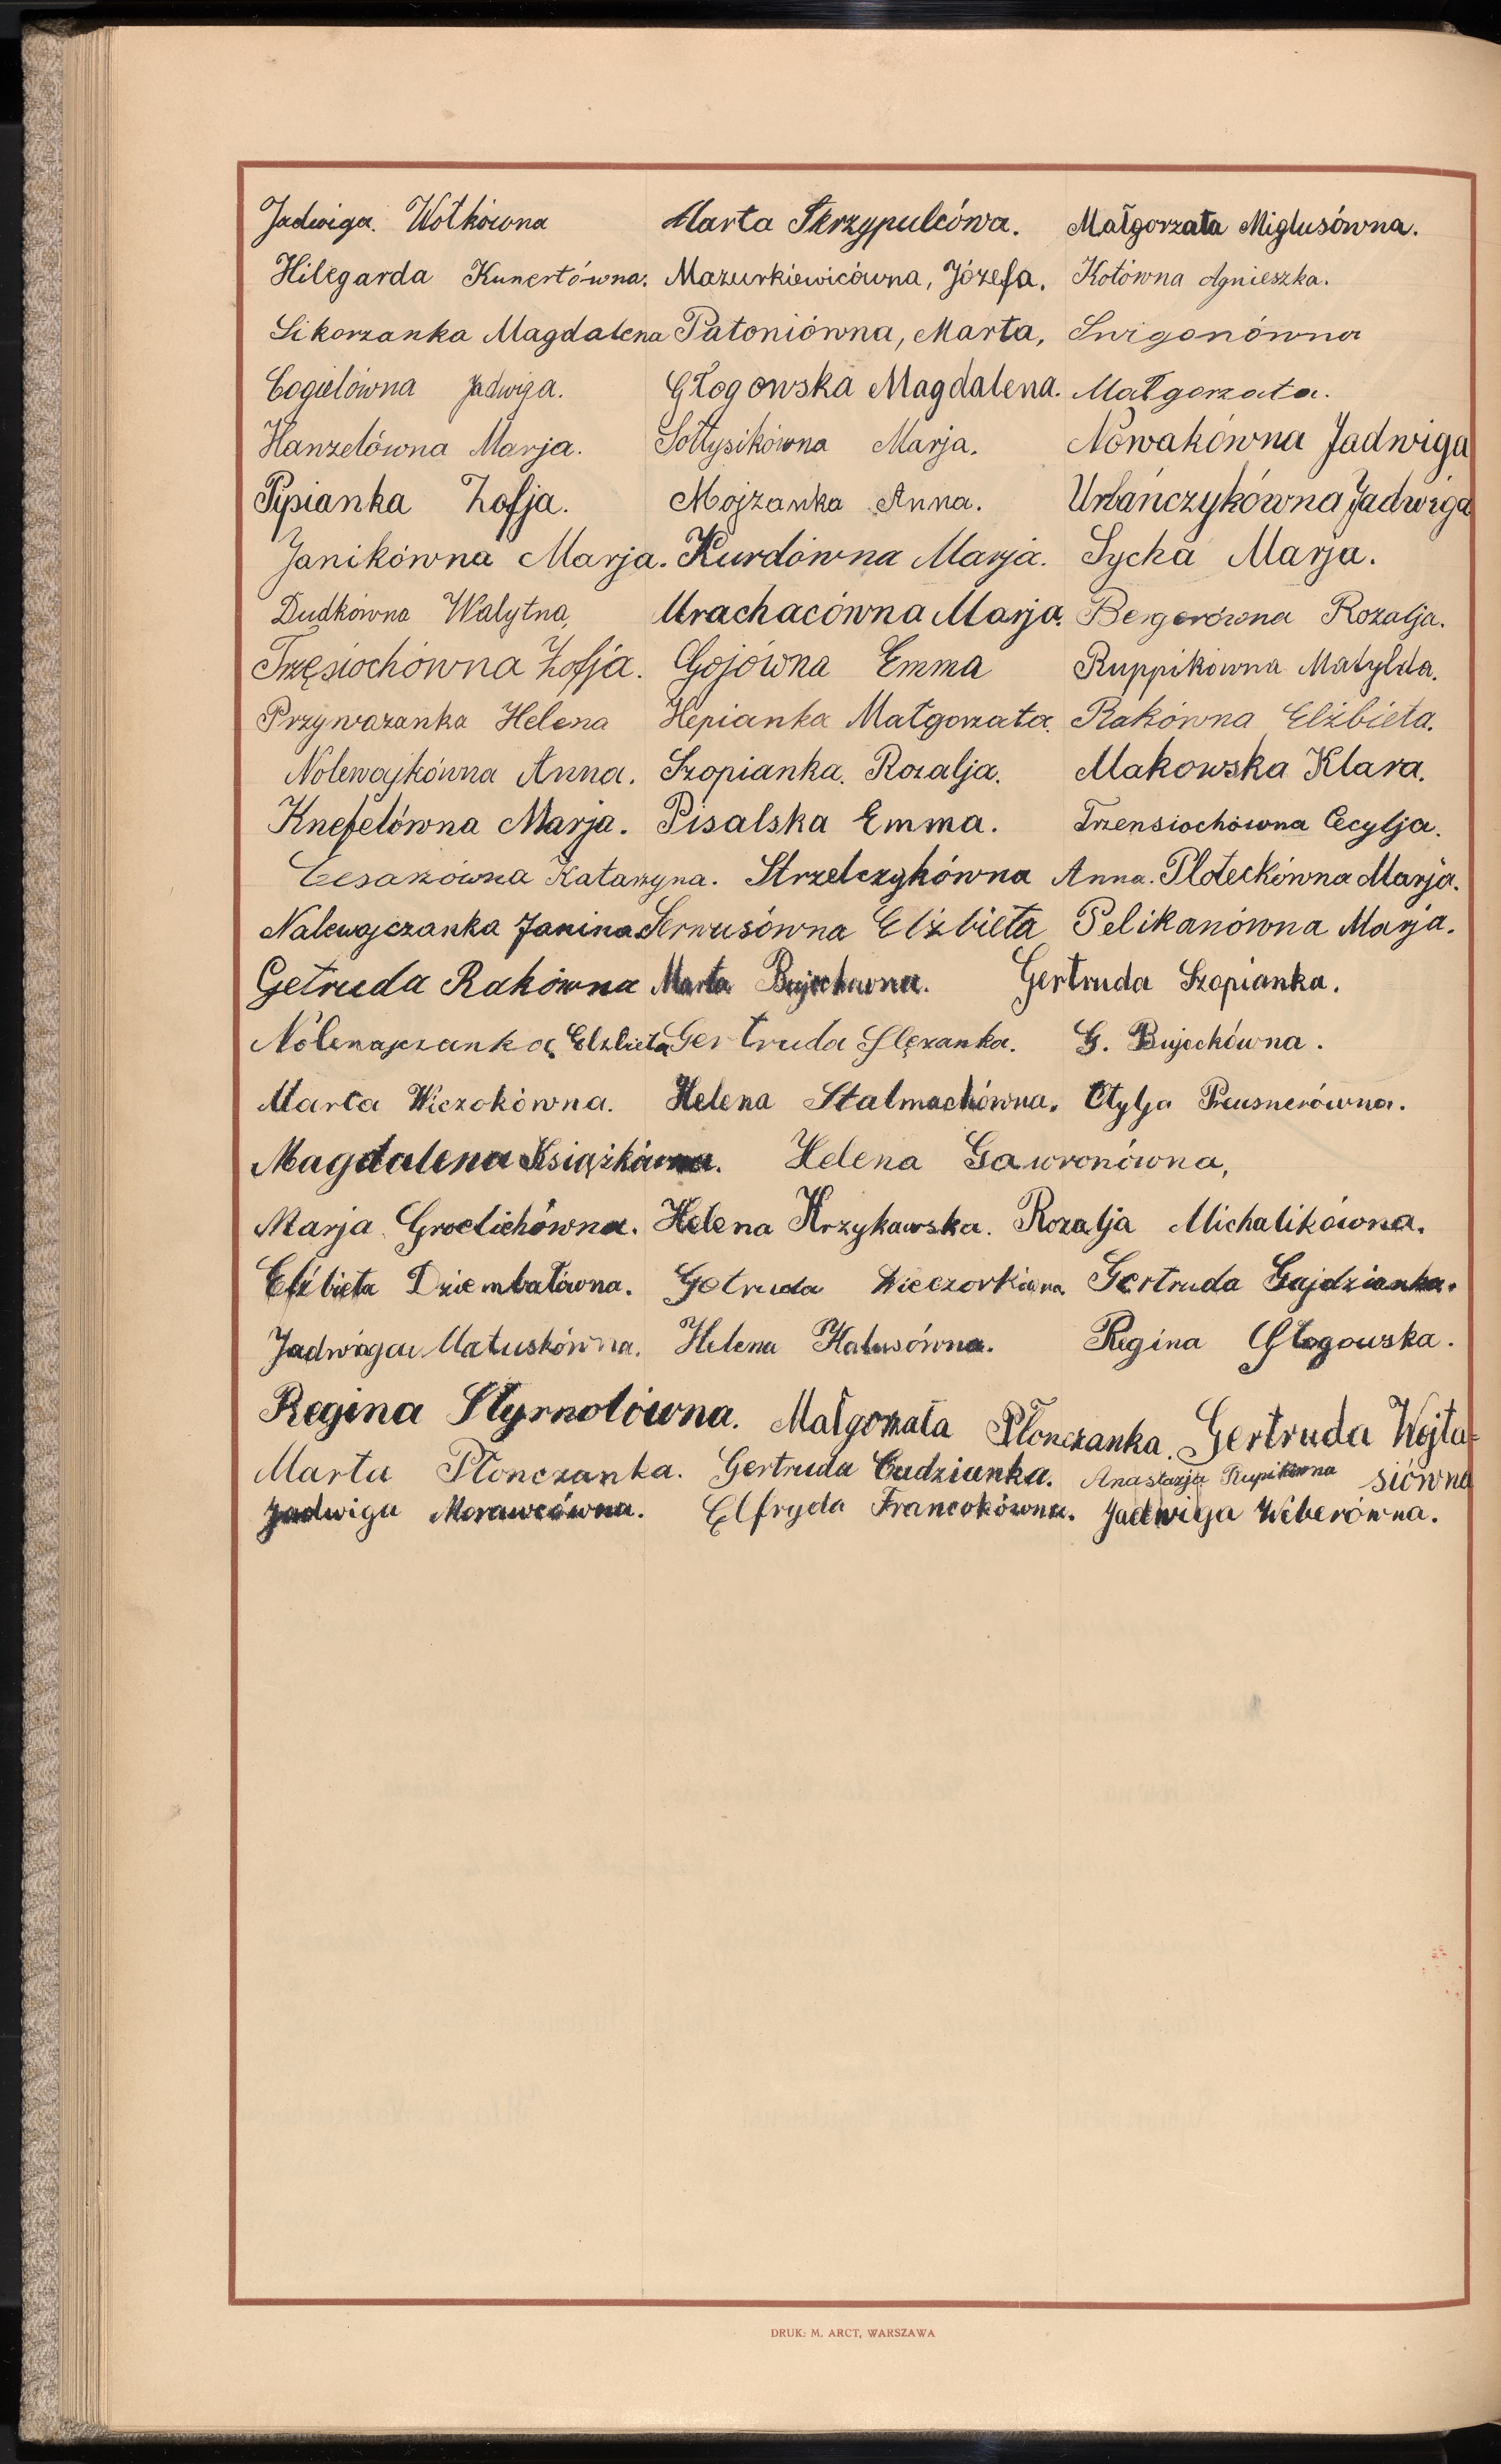 Jadwiga. Wotkówna Marta Skrzypulcówa. Małgorzata Miglusówna.
Hilegarda Kunertówna. Mazurkiewicówna, Józefa. Kotówna Agnieszka.
Sikorzanka Magdalena Patoniówna, Marta, Swigonówna
Cogielówna Jadwiga. Głogowska Magdalena. Małgorzata.
Hanzelówna Marja. Sołtysikówna Marja. Nowakówna Jadwiga
Pypsianka Zofja. Mojzanka Anna. Urbańczykówna Jadwiga
Janikówna Marja. Kurdówna Marja. Sycha Marja.
Dudkówna Walytna, Mrachacówna Marja. Bergerówna Rozalja.
Trzęsiochówna Zofja. Gojówna Emma Ruppikówna Matylda.
Przywarzanka Helena Hepianka Małgorzata. Rakówna Elżbieta.
Nolewajkówna Anna. Szopianka. Rozalja. Makowska Klara.
Knefelówna Marja. Pisalska Emma. Trzensiochówna Cecylja.
Cesarzówna Katarzyna. Strzelczykówna Anna. Ploteckówna Marja.
Nalewajczanka Janina Serwusówna Elżbieta Pelikanówna Marja.
Getruda Rakówna Marta Bujockówna. Gertruda Szopianka.
Nolewajczanka, Elżbieta Gertruda Ślęzanka. G. Bujockówna.
Marta Wiezokówna. Helena Stalmachówna. Otylja Preusnerówna.
Magdalena Książkówna. Helena Gawronówna,
Marja Groelichówna. Helena Krzykawska. Rozalja Michalikówna.
Elżbieta Dziembałówna. Getruda Wieczorkówna. Gertruda Gajdzianka.
Jadwiga Matuskówna. Helena Kalusówna. Regina Głogowska.
Regina Styrnolówna. Małgorzata Płonczanka. Gertruda Wojta-
Marta Płonczanka. Gertruda Cudzianka. Anastazja Rupikówna siówna
Jadwiga Morawcówna. Elfryda Francokówna. Jadwiga Weberówna.
DRUK: M. ARCT, WARSZAWA